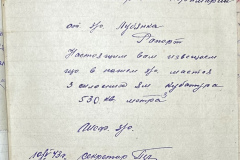 от з/о. Лубянка
Рапорт
Настоящим вам извещаем
що в нашем з/о. мается
3 силосной ям кубатура
530 кв. метра³
з/о.
10/ІІ 43 г. Секретар